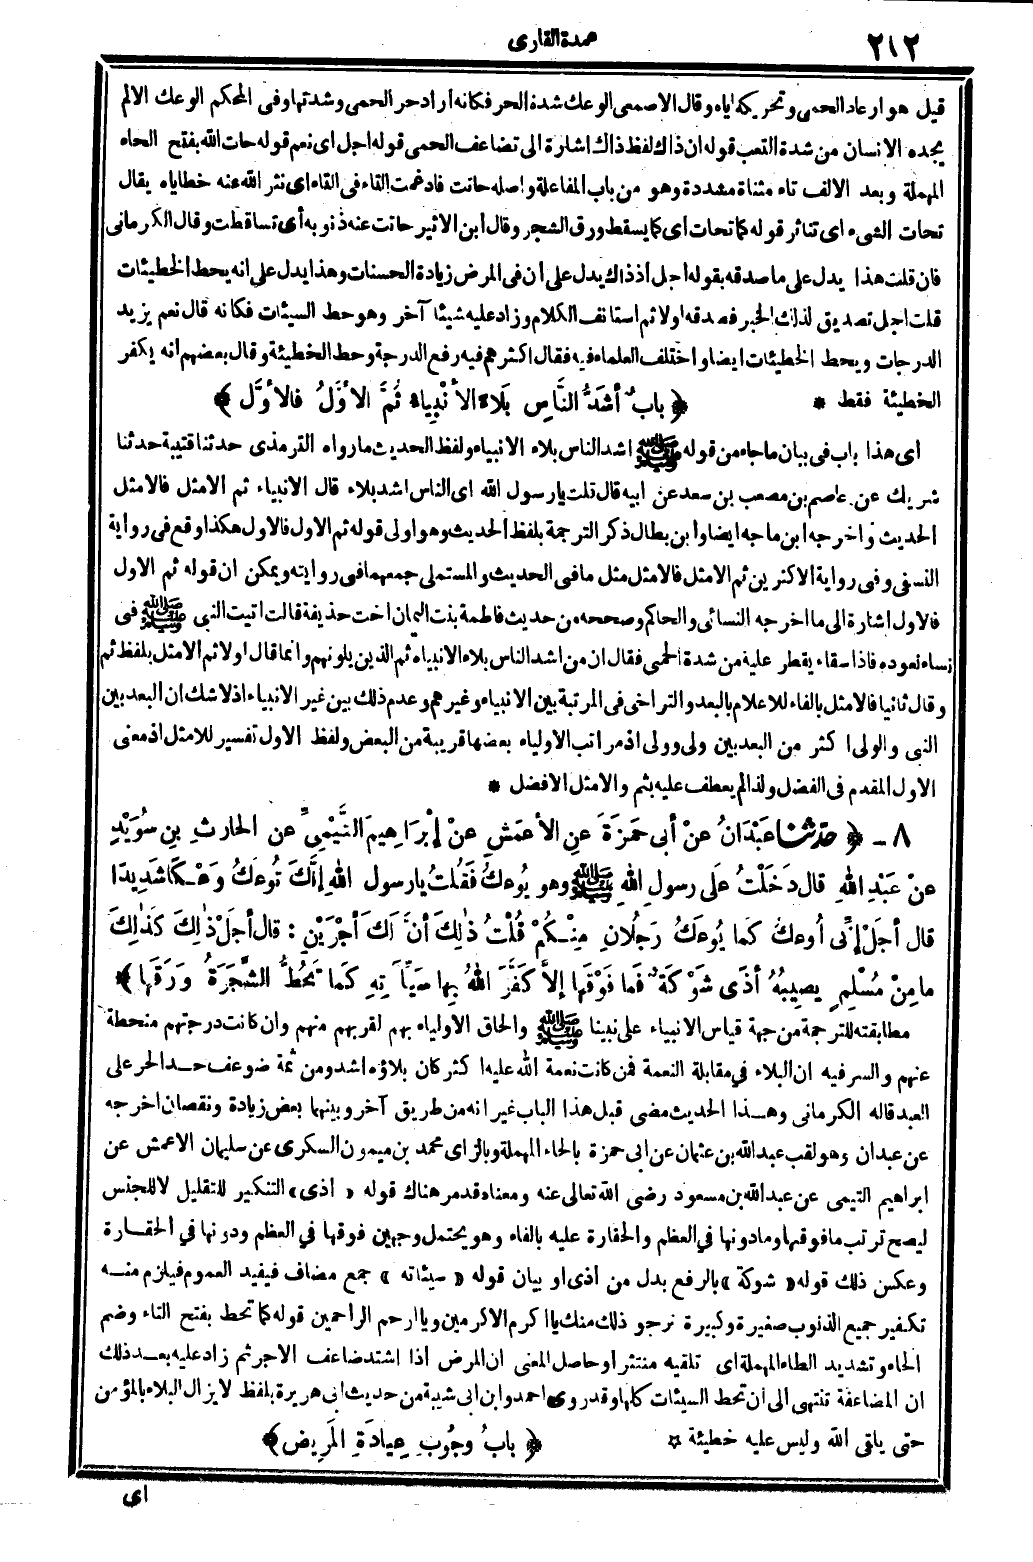 ٢١٢
عمدة القارى
قيل هو ارعاد الحمى وتحريكه اياه وقال الاصمعى الوعك شدة الحر فكانه أراد حر الحمى وشدتها وفى المحكم الوعك الالم
يجده الانسان من شدة التعب قوله ان ذاك لفظ ذاك اشارة الى تضاعف الحمى قوله اجل اى نعم قوله حات الله بفتح الحاء
المهملة وبعد الالف تاء مثناة مشددة وهو من باب المفاعلة واصله حاتت فادغمت التاء فى التاء اى نثر الله عنه خطاياه يقال
تحات الشىء اى تناثر قوله كما تحات اى كما يسقط ورق الشجر وقال ابن الاثير حاتت عنه ذنوبه أى تساقطت وقال الكرمانى
فان قلت هذا يدل على ما صدقه بقوله اجل اذ ذاك يدل على أن فى المرض زيادة الحسنات وهذا يدل على انه يحط الخطيئات
قلت اجل تصديق لذلك الخبر فصدقه اولا ثم استانف الكلام وزاد عليه شيئا آخر وهو حط السيئات فكانه قال نعم يزيد
الدرجات ويحط الخطيئات ايضا واختلف العلماء فيه فقال اكثرهم فيه رفع الدرجة وحط الخطيئة وقال بعضهم انه يكفر
الخطيئة فقط *
﴿ بابٌ أشَدُّ النَّاسِ بَلاءً الأنْبِياءُ ثُمَّ الأوَّلُ فالأوَّل ﴾
أى هذا باب فى بيان ما جاء من قوله ﷺ اشد الناس بلاء الانبياء ولفظ الحديث ما رواه الترمذى حدثنا قتيبة حدثنا
شريك عن عاصم بن مصعب بن سعد عن ابيه قال قلت يا رسول الله اى الناس اشد بلاء قال الانبياء ثم الامثل فالامثل
الحديث واخرجه ابن ماجه ايضا وابن بطال ذكر الترجمة بلفظ الحديث وهو اولى قوله ثم الاول فالاول هكذا وقع فى رواية
النسفى وفى رواية الاكثرين ثم الامثل فالامثل مثل ما فى الحديث والمستملى جمعهما فى روايته ويمكن ان قوله ثم الاول
فالاول اشارة الى ما اخرجه النسائى والحاكم وصححه من حديث فاطمة بنت اليمان اخت حذيفة قالت اتيت النبى ﷺ فى
نساء نعوده فاذا سقاء يقطر عليه من شدة الحمى فقال ان من اشد الناس بلاء الانبياء ثم الذين يلونهم وانما قال اولا ثم الامثل بلفظ ثم
وقال ثانيا فالامثل بالفاء للاعلام بالبعد والتراخى فى المرتبة بين الانبياء وغيرهم وعدم ذلك بين غير الانبياء اذ لا شك ان البعد بين
النبى والولى اكثر من البعد بين ولى وولى اذ مراتب الاولياء بعضها قريبة من البعض ولفظ الاول تفسير للامثل اذ معنى
الاول المقدم فى الفضل ولذا لم يعطف عليه بثم والامثل الافضل *
٨ - ﴿ حدثنا عَبْدَانُ عنْ أبى حَمزَةَ عنِ الأعْمَشِ عنْ إبْرَاهِيمَ التَّيْمِىِّ عنِ الحارثِ بنِ سُوَيْدٍ
عنْ عَبْدِ اللهِ قال دَخَلْتُ على رسولِ اللهِ ﷺ وهو يُوعَكُ فَقُلتُ يا رسولَ اللهِ إنَّكَ تُوعَكُ وَعْكًا شَدِيدًا
قال أجَلْ إنِّى أُوعَكُ كما يُوعَكُ رَجُلانِ مِنْكُمْ قُلْتُ ذٰلِكَ أنَّ لَكَ أجْرَيْنِ : قال أجَلْ ذٰلِكَ كَذٰلِكَ
ما مِنْ مُسْلِمٍ يصِيبُهُ أذًى شَوْكَةٌ فَما فَوْقَها إلاَّ كَفَّرَ اللهُ بِها سَيِّآتِهِ كَما تَحُطُّ الشَّجَرَةُ وَرَقَها ﴾
مطابقته للترجمة من جهة قياس الانبياء على نبينا ﷺ والحاق الاولياء بهم لقربهم منهم وان كانت درجتهم منحطة
عنهم والسر فيه ان البلاء فى مقابلة النعمة فمن كانت نعمة الله عليه اكثر كان بلاؤه اشد ومن ثمة ضوعف حد الحر على
العبد قاله الكرمانى وهذا الحديث مضى قبل هذا الباب غير انه من طريق آخر وبينهما بعض زيادة ونقصان اخرجه
عن عبدان وهو لقب عبد الله بن عثمان عن ابى حمزة بالحاء المهملة وبالزاى محمد بن ميمون السكرى عن سليمان الاعمش عن
ابراهيم التيمى عن عبد الله بن مسعود رضى الله تعالى عنه ومعناه قد مر هناك قوله « اذى » التنكير للتقليل لا للجنس
ليصح ترتب ما فوقها وما دونها فى العظم والحقارة عليه بالفاء وهو يحتمل وجهين فوقها فى العظم ودونها فى الحقارة
وعكس ذلك قوله « شوكة » بالرفع بدل من أذى او بيان قوله « سيئاته » جمع مضاف فيفيد العموم فيلزم منه
تكفير جميع الذنوب صغيرة وكبيرة نرجو ذلك منك يا اكرم الاكرمين ويا ارحم الراحمين قوله كما تحط بفتح التاء وضم
الحاء وتشديد الطاء المهملة اى تلقيه منتثرا وحاصل المعنى ان المرض اذا اشتد ضاعف الاجر ثم زاد عليه بعد ذلك
ان المضاعفة تنتهى الى ان تحط السيئات كلها وقد روى احمد وابن ابى شيبة من حديث ابى هريرة بلفظ لا يزال البلاء بالمؤمن
حتى يلقى الله وليس عليه خطيئة *
﴿ بابُ وجُوبِ عِيادَةِ المَرِيض ﴾
اى